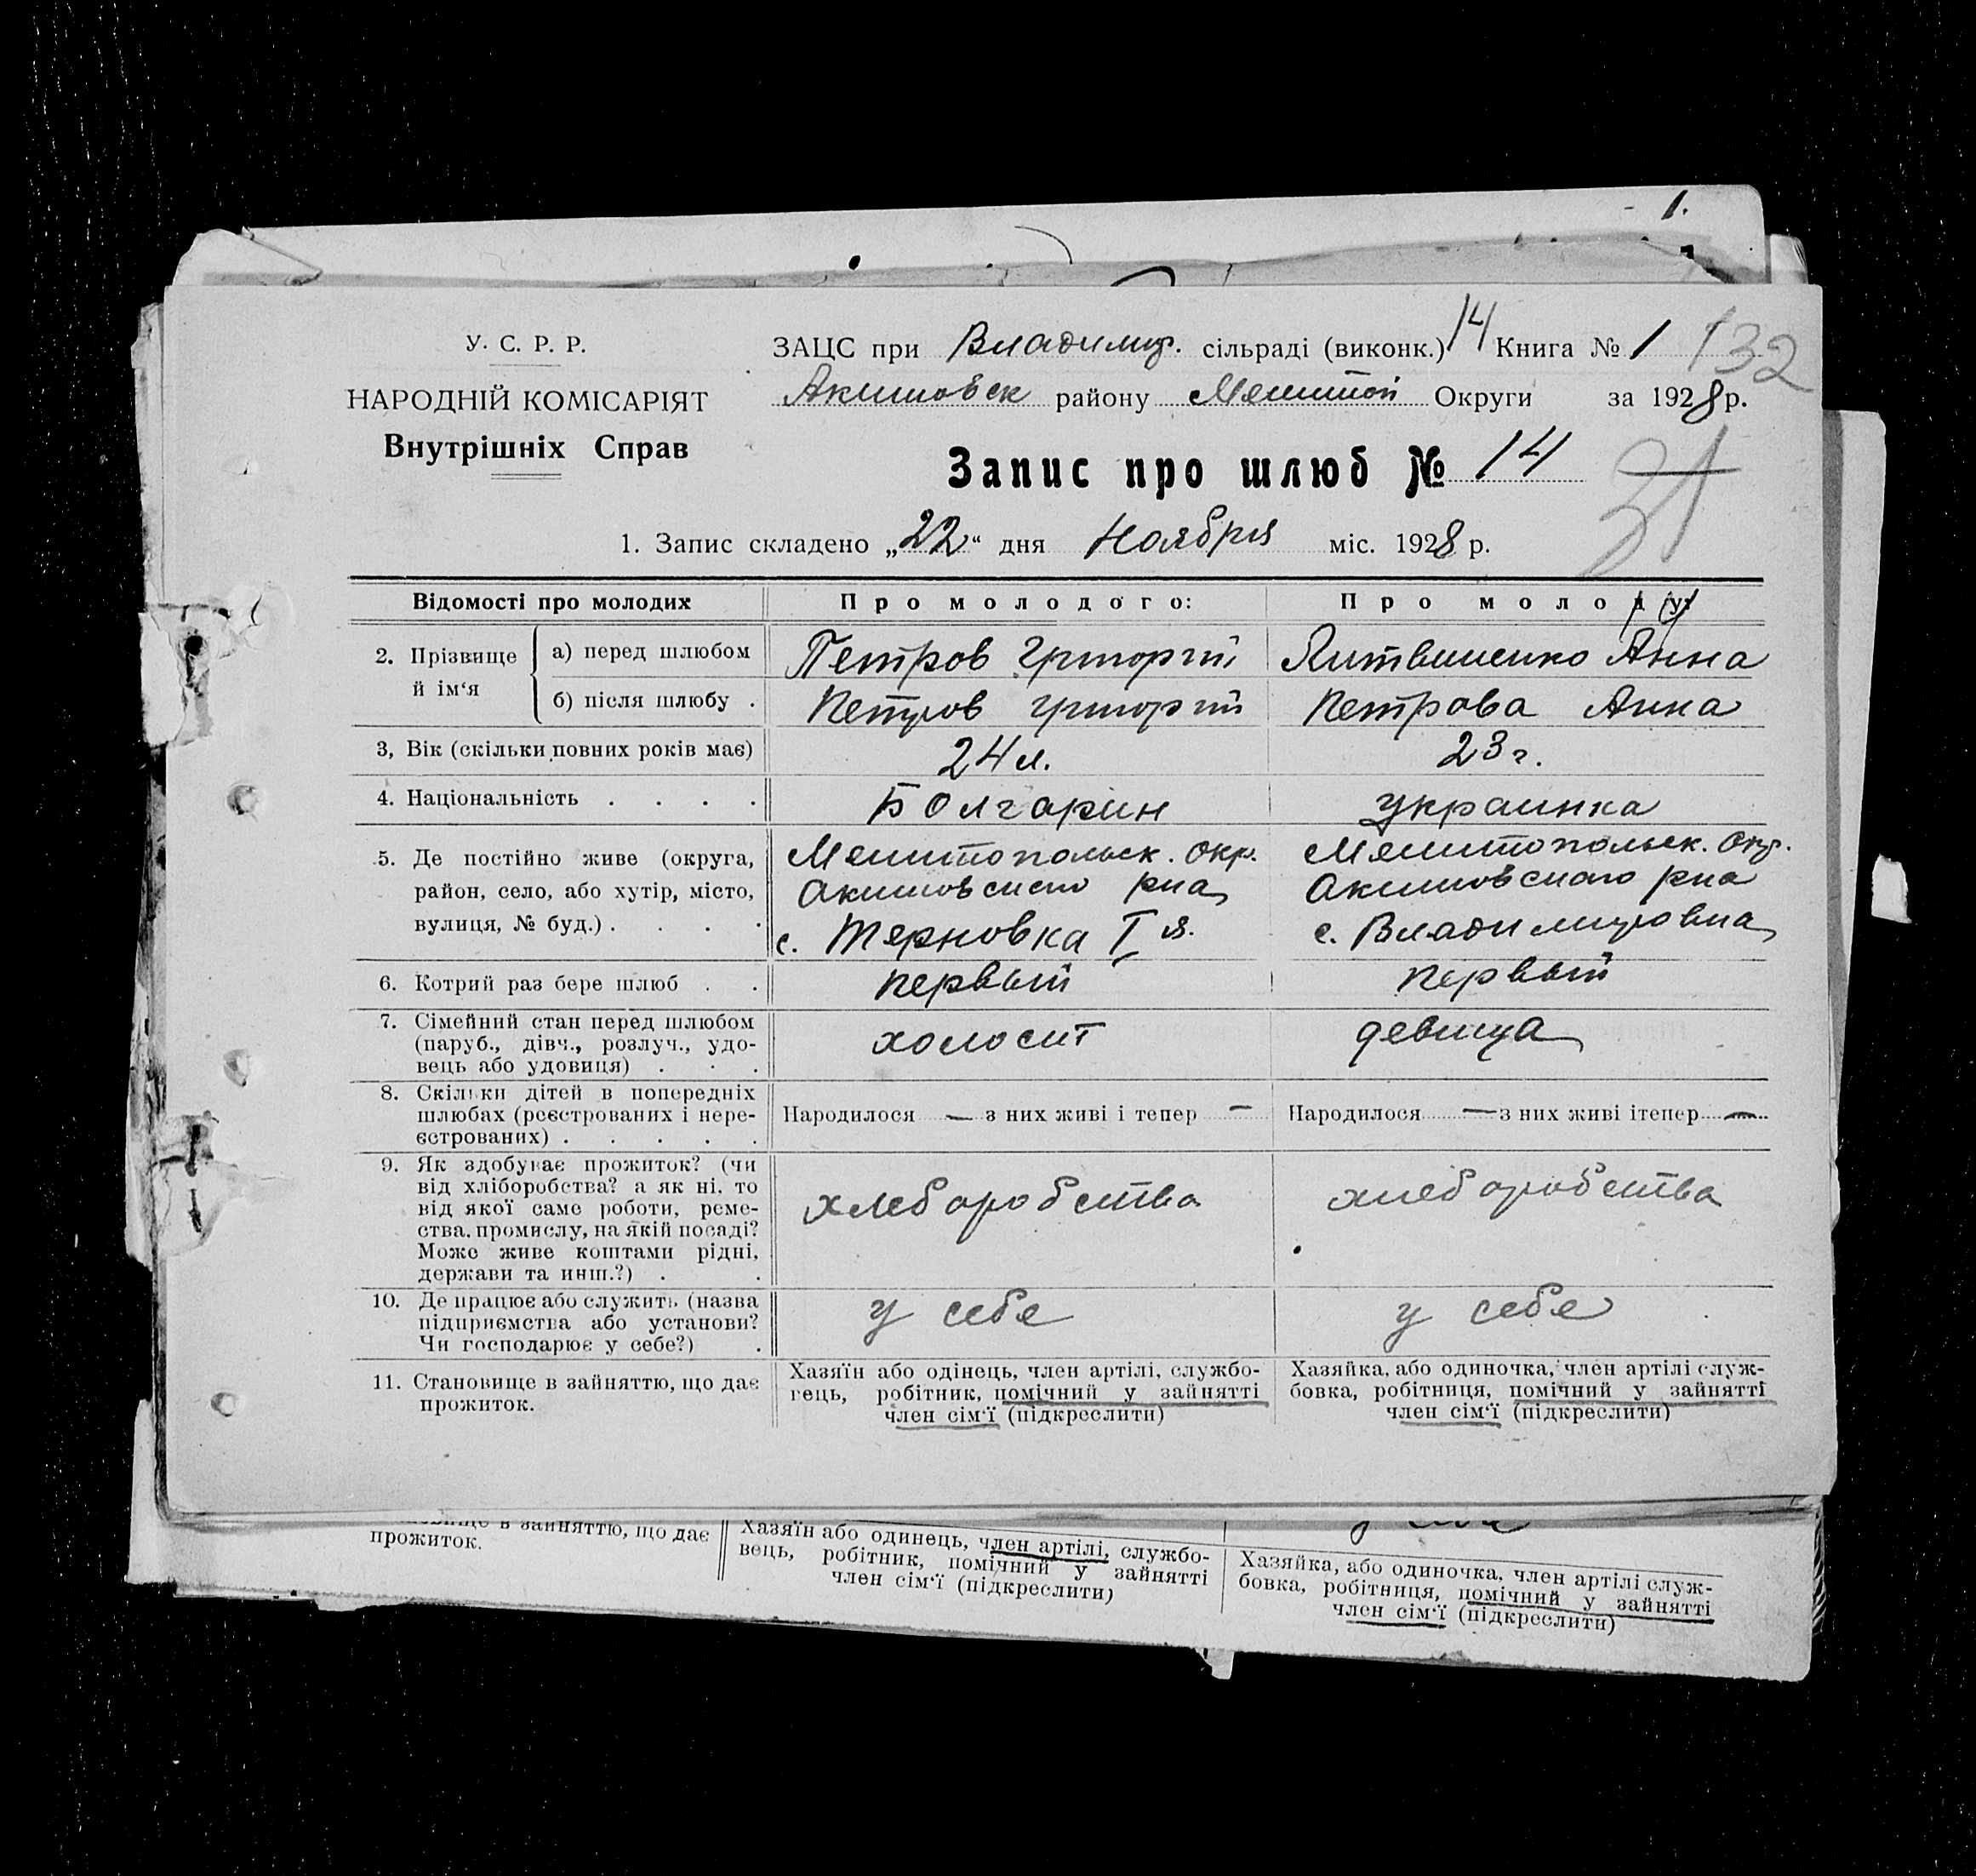 1.
У. С. Р. Р.
НАРОДНІЙ КОМІСАРІЯТ
Внутрішніх Справ
ЗАЦС при Владимир. сільраді (виконк.) 14 Книга № 1 132
Акимовск района Мелитоп Округи за 1928 р.
Запис про шлюб № 14
31
1. Запис складено „22“ дня Ноября міс. 1928 р.
Відомості про молодих
Про молодого:
Про молоду:
19
2. Прізвище й ім‘я
а) перед шлюбом
Петров Григорий
Литвиненко Анна
б) після шлюбу .
Петров Григорий
Петрова Анна
3, Вік (скільки повних років має)
24 л.
23 г.
4. Національність . . . .
Болгарин
украинка
5. Де постійно живе (округа,
район, село, або хутір, місто,
вулиця, № буд.) . . . .
Мелитопольск. Окр.
Акимовского р-на
с. Терновка I я.
Мелитопольск. Окр.
Акимовского р-на
с. Владимировка
6. Котрий раз бере шлюб . .
первый
первый
7. Сімейний стан перед шлюбом
(паруб., дівч., розлуч., удо-
вець або удовиця) . . .
холост
девица
8. Скільки дітей в попередніх
шлюбах (реєстрованих і нере-
єстрованих) . . . . .
Народилося — з них живі і тепер —
Народилося — з них живі ітепер —
9. Як здобуває прожиток? (чи
від хліборобства? а як ні, то
від якої саме роботи, реме-
ства, промислу, на якій посаді?
Може живе коштами рідні,
держави та инш.?) . .
хлеборобства
хлеборобства
10. Де працює або служить (назва
підприємства або установи?
Чи господарює у себе?) .
у себе
у себе
11. Становище в зайняттю, що дає
прожиток.
Хазяїн або одінець, член артілі, службо-
гець, робітник, помічний у зайнятті
член сім‘ї (підкреслити)
Хазяйка, або одиночка, член артілі служ-
бовка, робітниця, помічний у зайнятті
член сім‘ї (підкреслити)
в зайняттю, що дає
прожиток.
Хазяїн або одинець, член артілі, службо-
вець, робітник, помічний у зайнятті
член сім‘ї (підкреслити)
Хазяйка, або одиночка, член артілі служ-
бовка, робітниця, помічний у зайнятті
член сім‘ї (підкреслити)